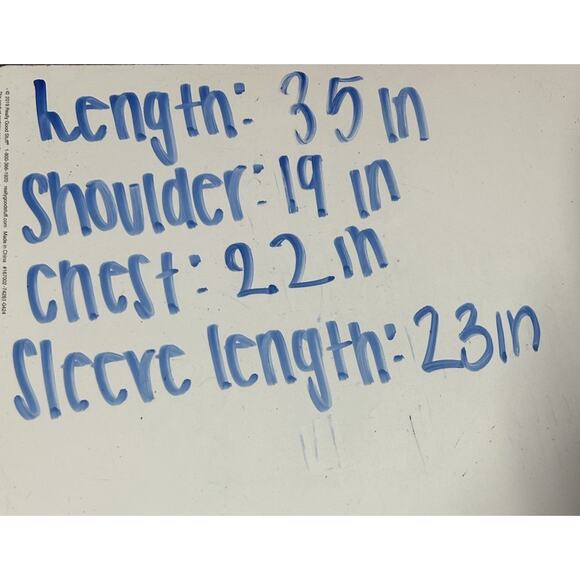 Length: 35 in
Shoulder: 19 in
Chest: 22 in
Sleeve length: 23 in
© 2019 Really Good Stuff 1-800-366-1920 reallygoodstuff.com Made in China